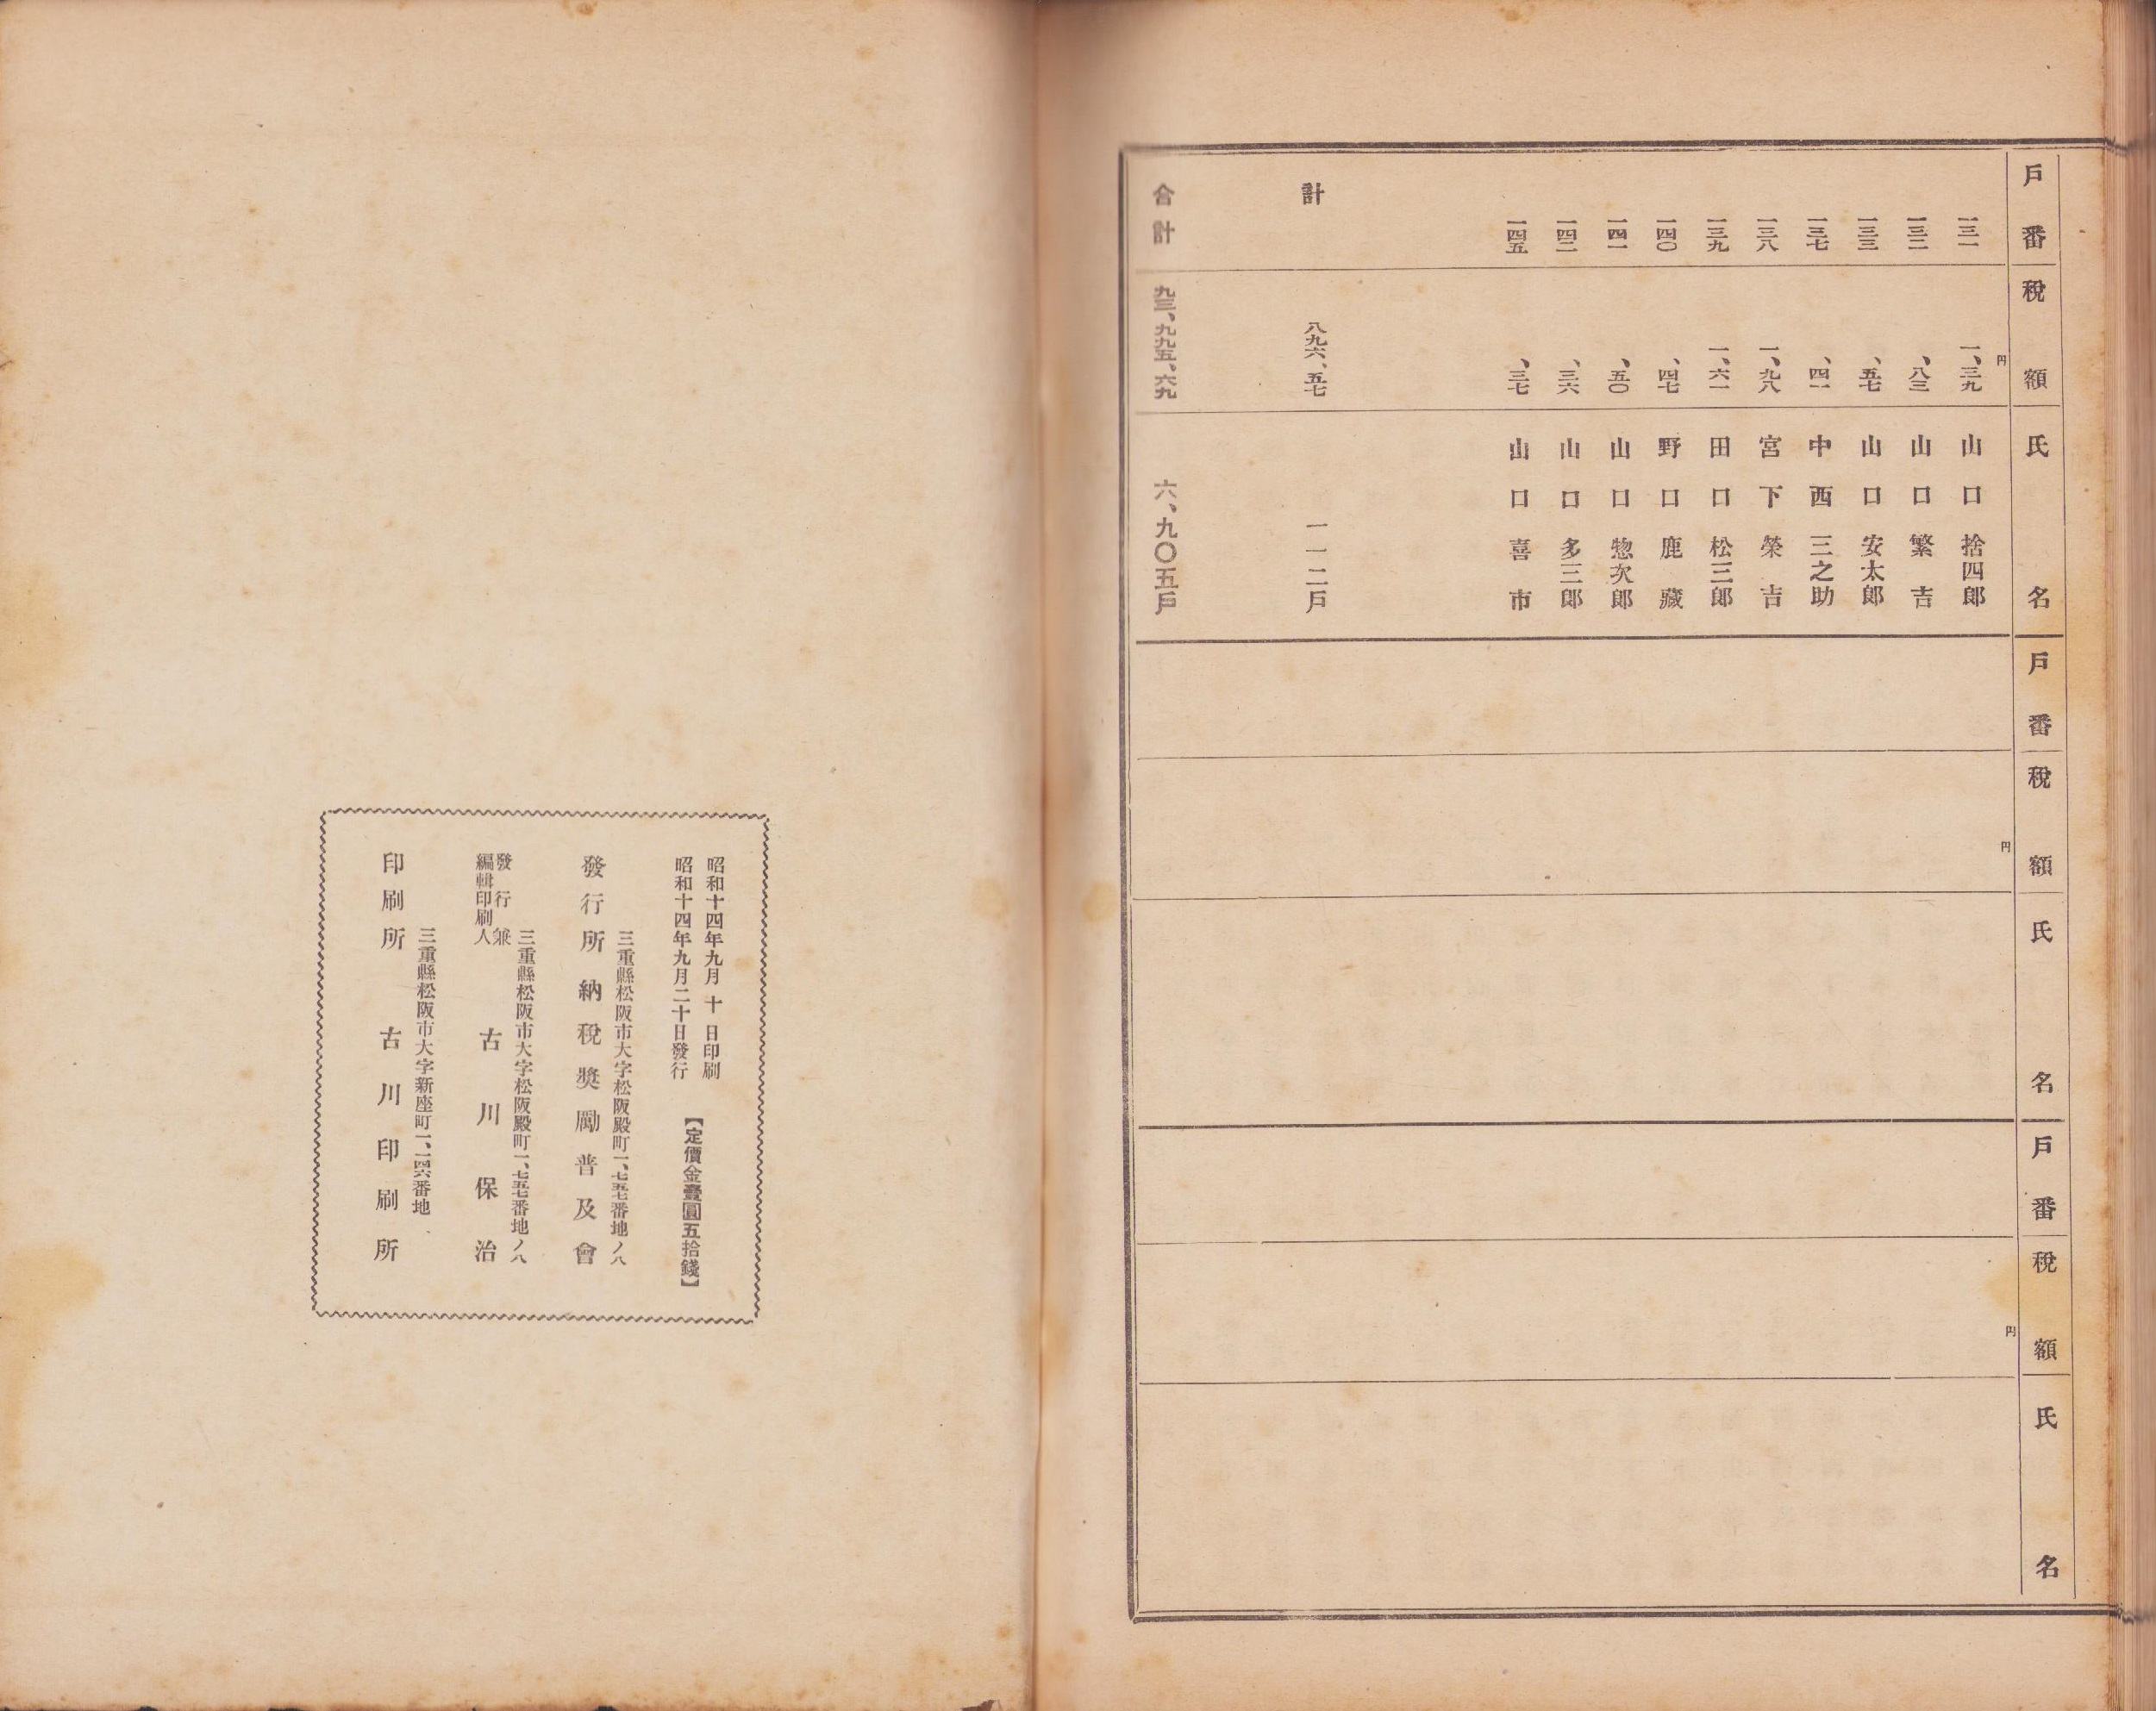 戶番 税額 氏名
円
一三一 一、三九 山口捨四郎
一三二 、八三 山口繁吉
一三三 、五七 山口安太郎
一三七 、四一 中西三之助
一三八 一、九八 宮下榮吉
一三九 一、六一 田口松三郎
一四〇 、四七 野口鹿藏
一四一 、五〇 山口惣次郎
一四二 、三六 山口多三郎
一四五 、三七 山口喜市
計 八九六、五七 一一二戶
合計 九三、九九五、六九 六、九〇五戶
戶番 税額 氏名
円
戶番 税額 氏名
円
昭和十四年九月十日印刷
昭和十四年九月二十日發行
【定價金壹圓五拾錢】
三重縣松阪市大字松阪殿町一、七五七番地ノ八
發行所 納税奬勵普及會
三重縣松阪市大字松阪殿町一、七五七番地ノ八
發行兼
編輯印刷人 古川保治
三重縣松阪市大字新座町一、一四六番地
印刷所 古川印刷所